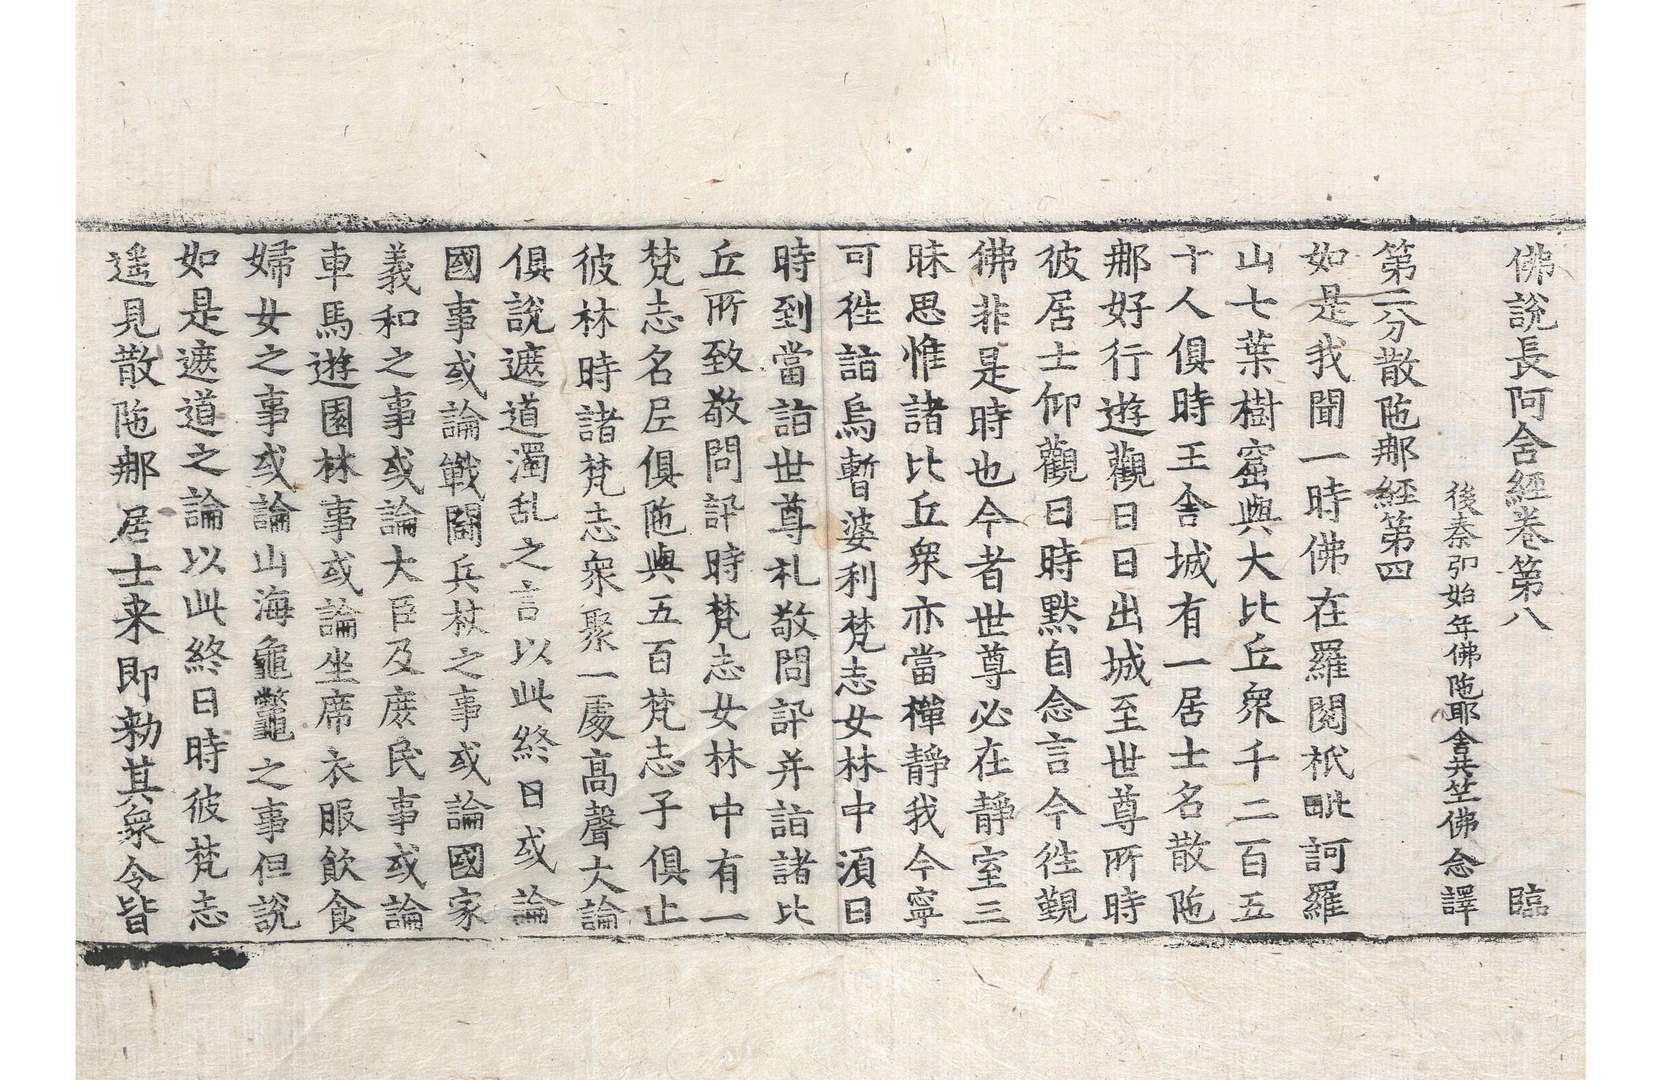 佛說長阿含經卷第八　臨
後秦弘始年佛陁耶舍共竺佛念譯
第二分散陁那經第四
如是我聞一時佛在羅閱祇毗訶羅
山七葉樹窟與大比丘衆千二百五
十人俱時王舍城有一居士名散陁
那好行遊觀日日出城至世尊所時
彼居士仰觀日時默自念言今徃覲
佛非是時也今者世尊必在靜室三
昧思惟諸比丘衆亦當禪靜我今寧
可徃詣烏暫婆利梵志女林中湏日
時到當詣世尊礼敬問訊并詣諸比
丘所致敬問訊時梵志女林中有一
梵志名尼俱陁與五百梵志子俱止
彼林時諸梵志衆聚一處高聲大論
俱說遮道濁乱之言以此終日或論
國事或論戰鬪兵杖之事或論國家
義和之事或論大臣及庶民事或論
車馬遊園林事或論坐席衣服飲食
婦女之事或論山海龜鼈之事但說
如是遮道之論以此終日時彼梵志
遥見散陁那居士来即勑其衆令皆